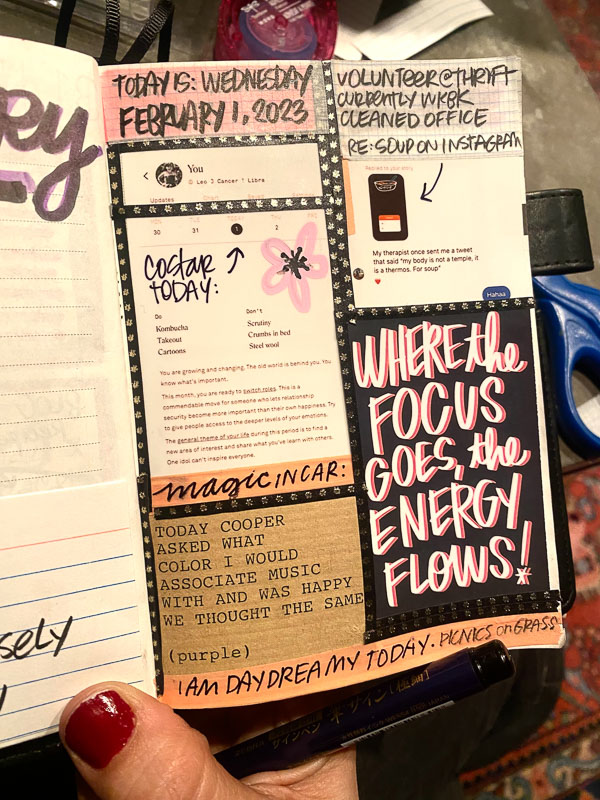 TODAY IS: WEDNESDAY
FEBRUARY 1, 2023
VOLUNTEER@THRIFT
CURRENTLY WKBK
CLEANED OFFICE
RE: SOUP ON INSTAGRAM
You
Leo Cancer Libra
Updates
TODAY
30 31 1 2
COSTAR
TODAY:
Do
Kombucha
Takeout
Cartoons
Don't
Scrutiny
Crumbs in bed
Steel wool
You are growing and changing. The old world is behind you. You
know what's important.
This month, you are ready to switch roles. This is a
commendable move for someone who lets relationship
security become more important than their own happiness. Try
to give people access to the deeper levels of your emotions.
The general theme of your life during this period is to find a
new area of interest and share what you've learn with others.
One idol can't inspire everyone.
magic IN CAR:
TODAY COOPER
ASKED WHAT
COLOR I WOULD
ASSOCIATE MUSIC
WITH AND WAS HAPPY
WE THOUGHT THE SAME
(purple)
Replied to your story
My therapist once sent me a tweet
that said "my body is not a temple, it
is a thermos. For soup"
Hahaa
WHERE the
FOCUS
GOES, the
ENERGY
FLOWS!
I AM DAYDREAMY TODAY · PICNICS on GRASS
sely
サインペン